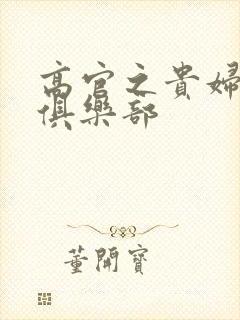 高官之貴婦
俱樂部
董開寶